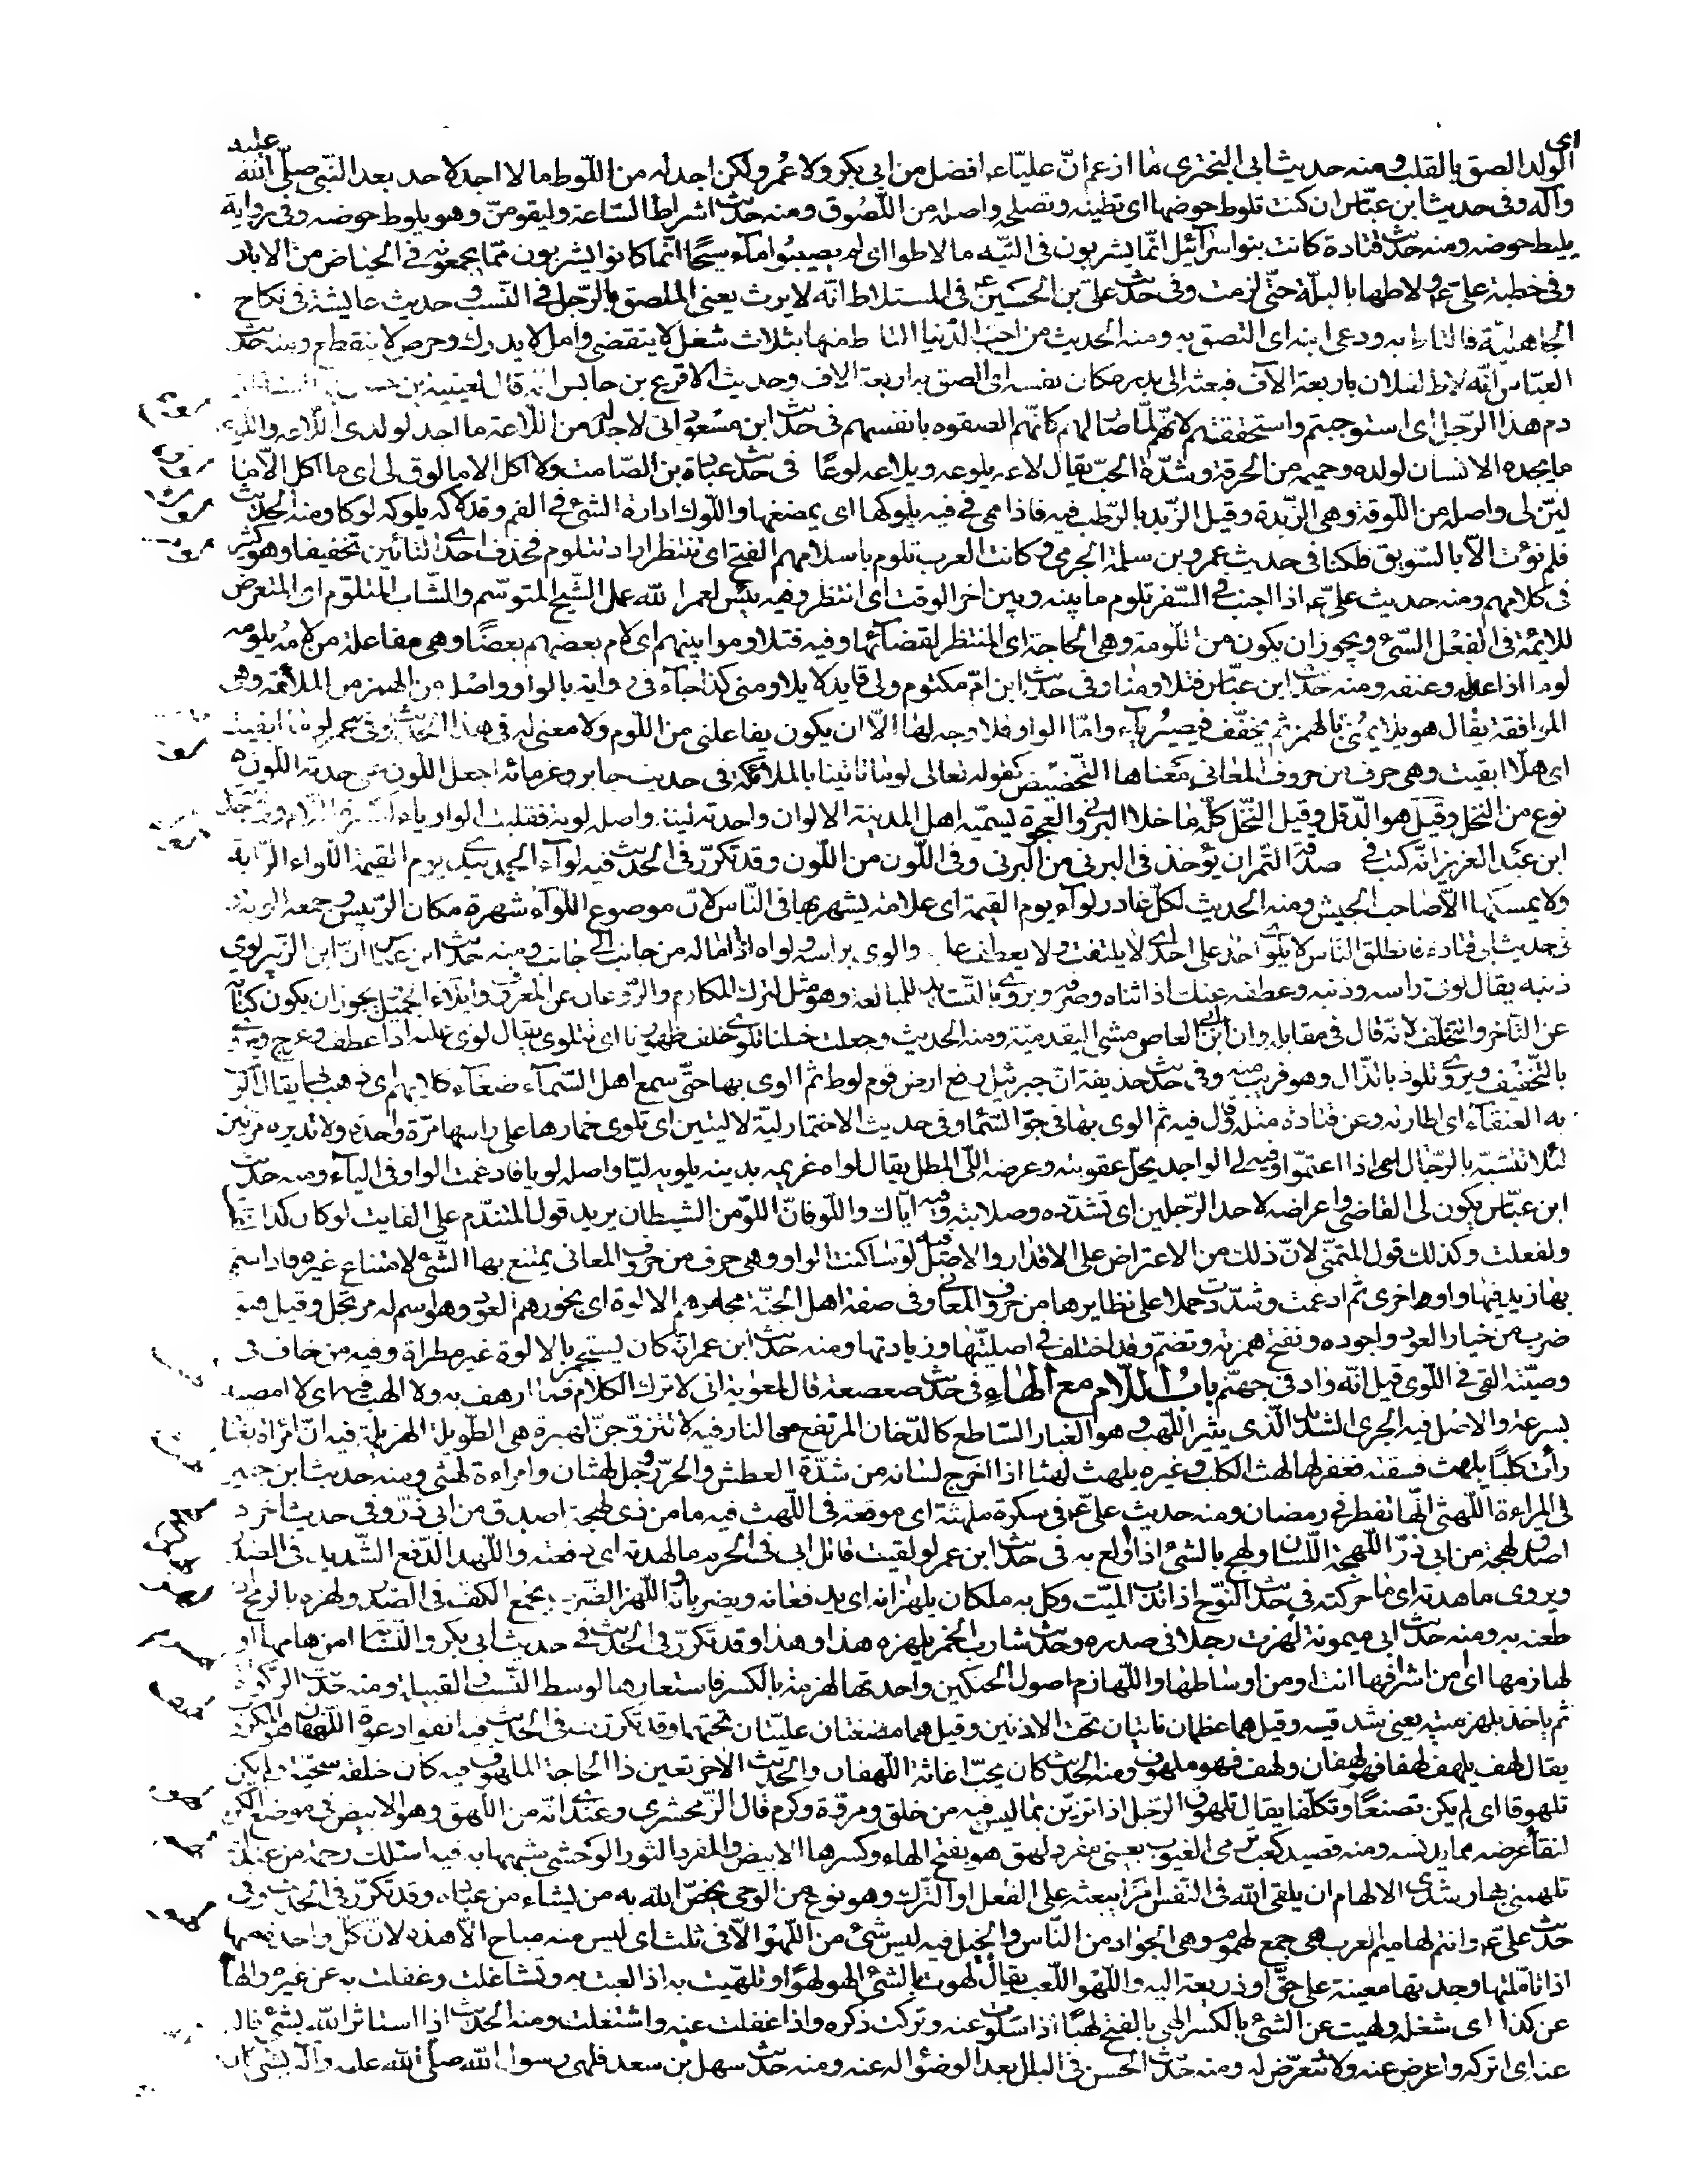 اى الولد الصق بالقلب ومنه حديث ابى البخترى ما ازعم انّ عليّاء افضل من ابى بكر ولا عُمر ولكن اجد له من اللّوط ما لا اجد لاحد بعد النّبى صلّى الله عليه
وآله وفى حديث ابن عبّاس ان كنت تلوط حوضها اى تطينه وتصلحه واصله من اللّصُوق ومنه حديث اشراط السّاعة وليقومنّ وهو يلوط حوضه وفى رواية
يليط حوضه ومنه حديث قتادة كانت بنو اسرآئيل انّما يشربون فى التيّه ما لاطوا اى لم يصيبُوا مآء سيحًا انّما كانوا يشربون ممّا يجمعونه فى الحياض من الابار
وفى خطبة علىّ ع ولاطها بالبلّة حتّى لزمت وفى حديث علىّ بن الحسَين ع فى المستلاط انّه لا يرث يعنى الملصق بالرّجل فى النّسب وحديث عايشة فى نكاح
الجاهليّة فالتاط به ودعى ابنه اى التصق به ومنه الحديث من احبّ الدّنيا التاط منها بثلاث شغل لا ينقضى وامل لا يدرك وحرص لا ينقطع ومنه حديث
العبّاس انّه لاط لفلان باربعة الآف فبعثه الى بدر مكان نفسه اى الصق به اربعة الاف وحديث الاقرع بن حابس انّه قال لعيينة بن
دم هذا الرّجل اى استوجبتم واستحققتم لانّه لمّا صار لهم كانّهم الصقوه بانفسهم فى حديث ابن مسْعود انى لاجد له من اللّاعة ما اجد لولدى اللّاعة واللّوعة
ما يجده الانسان لولده وحميمه من الحرقة وشدّة الحبّ يقال لاعه يلوعه ويلاعه لوعًا فى حديث عبادة بن الصّامت ولا اكل الا ما لوق لى اى ما اكل الّا ما
ليّن لى واصله من اللّوقة وهى الزّبدة وقيل الزّبد بالرّطب فيه فاذا هى فى فيه يلوكها اى يمضغها واللّوك ادارة الشئ فى الفم وقد لاكه يلوكه لوكا ومنه الحديث
فلم نؤت الّا بالسّويق فلكنا فى حديث عمرو بن سلمة الجرمى وكانت العرب تلوم باسلامهم الفتح اى تنتظر اراد تتلوم فحذف احدى التّائين تخفيفا وهو كثير
فى كلامهم ومنه حديث علىّ ع اذا اجنب فى السّفر تلوم ما بينه وبين اخر الوقت اى انتظر وفيه بئس لعمر الله عمل الشّيخ المتوسّم والشّاب المتلوّم اى المتعرض
للائمة فى الفعْل السّئ ويجوز ان يكون من تلّومة وهى الحاجة اى المنتظر لقضآئها وفيه فتلاوموا بينهم اى لام بعضهم بعضًا وهى مفاعلة من لامُه يلومه
لوما اذا عذله وعنفه ومنه حديث ابن عبّاس فتلاومنا وفى حديث ابن امّ مكتوم ولى قايد لا يلاومنى كذا جآء فى رواية بالواو واصْله من الهمز من الملائمة وهى
الموافقة يقال هو يلايمُنى بالهمز ثم يخفّف فيصيرُ يآء وامّا الواو فلا وجه لها الّا ان يكون يفاعلنى من اللّوم ولا معنى له فى هذا الحديث وفى عمر لوما ابقيت
اى هلّا ابقيت وهى حرف من حروف المعانى مَعناها التّحضيض كقوله تعالى لوما تاتينا بالملائكة فى حديث جابر وغرمائه اجعل اللّون على حدته اللّون
نوع من النخل وقيل هو الدّقل وقيل النّخل كلّه ما خلا البرنى والعجوة يسمّيه اهل المدينة الالوان واحدته لينة واصله لونة فقلبت الواو ياء لكسرة اللّام وحديث
ابن عَبد العزيز انّه كتب فى صدقة التّمر ان يؤخذ فى البرنى من البرنى وفى اللّون من اللّون وقد تكرّر فى الحديث فيه لوآء الحمد بيدى يوم القيمة اللّواء الرّاية
ولا يمسكها الّا صَاحب الجيش ومنه الحديث لكلّ غادر لوآء يوم القيمة اى علامة يشهر بها فى النّاس لانّ موضوع اللّوآء شهرة مكان الرّئيس وجمعه الوية
فى حديث ابى قتادة فانطلق النّاس لا يلوى احد على احد اى لا يلتفت ولا يعطف عليه والوى براسه ولواه اذا اماله من جانب الى جانب ومنه حديث ابن عبّاس انّ ابن الزّبير لوى
ذنبه يقال لوى راسه وذنبه وعطفه عنك اذا ثناه وصرفه ويروى بالتّشديد للمبالغة وهو مثل لترك المكارم والرّوغان عن المعروف وايلاء الجميل يجوز ان يكون كناية
عن التّاخر والتخلّف لانّه قال فى مقابله وان ابن ابى العاص مشى اليقدميّة ومنه الحديث وجعلت خيلنا تلوى خلف ظهورنا اى تتلوى يقال لوى عليه اذا عطف وعرج ويروى
بالتّخفيف ويروى تلوذ بالذّال وهو قريب منه وفى حديث حذيفة انّ جبرئيل رفع ارض قوم لوط ثم الوى بها حتّى سمع اهل السّمآء ضغآء كلابهم اى ذهب بها يقال الوت
به العنقآء اى اطارته وعن قتادة مثله وقال فيه ثم الوى بها فى جوّ السّمآ وفى حديث الاختمار ليّة لا ليّتين اى تلوى خمارها على راسها مرّة واحدة ولا تديره مرّتين
لئلا تتشبّه بالرّجال اذا اعتموّا وفيه لى الواجد يحلّ عقوبته وعرضه اللّى المطل يقال لواه غريمه بدينه يلويه ليّا واصله لويا فادغمت الواو فى اليآء ومنه حديث
ابن عبّاس يكون لى القاضى واعراضه لاحد الرّجلين اى تشدّده وصلابته وفيه ايّاك واللّو فانّ اللوّ من الشيطان يريد قول المتندّم على الفايت لو كان كذا لقلت
ولفعلت وكذلك قول المتمنّى لانّ ذلك من الاعتراض على الاقدار والاصْل فيه لوْ ساكنة الواو وهى حرف من حروف المعانى يمتنع بها الشّئ لامتناع غيره فاذا سمّى
بها زيد فيها واو اخرى ثم ادغمت وشدّدت حملا على نظايرها من حروف المعانى وفى صفة اهل الجنّة مجامرهم الالوة اى بخورهم العود وهو اسم له مرتجل وقيل هو
ضرب من خيار العود واجوده وتفتح همزته وتضمّ وقد اختلف فى اصليّتها وزيادتها ومنه حديث ابن عمر انّه كان يستجمر بالالوة غير مطراة وفيه من خاف فى
وصيّته القى فى اللّوى قيل انّه واد فى جهنّم بابُ اللّام مع الهاءِ فى حديث صعصعة قال لمعوية انى لا ترك الكلام فما ارهف به ولا الهب فيه اى لا امضيه
بسرعة والاصْل فيه الجرى الشديد الّذى يثير اللّهب وهو الغبار السّاطع كالدّخان المرتفع من النار فيه لا تتزوّجنّ لهبرة هى الطّويلة الهزيلة فيه انّ امراة بغيّا
رأت كلبًا يلهث فسقته فغفر لها لهث الكلب وغيره يلهث لهثا اذا اخرج لسانه من شدّة العطش والحرّ ورجل لهثان وامراءة لهثى ومنه حديث ابن جبير
فى المراءة اللّهثى انّها تفطر فى رمضان ومنه حديث علىّ ع فى سكرة ملهثة اى موقعة فى اللّهث فيه ما من ذى لهجة اصدق من ابى ذرّ وفى حديث اخر
اصدق لهجة من ابى ذرّ اللّهجة اللّسان ولهج بالشئ اذا اولع به فى حديث ابن عمر لو لقيت قاتل ابى فى الحرم ما لهدته اى دفعته واللّهد الدّفع الشّديد فى الصّدر
ويروى ما هدته اى ما حركته فى حديث النّوح اذا ندب الميّت وكل به ملكان يلهزانه اى يدفعانه ويضربانه واللّهز الضّرب بجمع الكفّ فى الصّدر ولهزه بالرّمح اذا
طعنه به ومنه حديث ابى ميمونة لهزت رجلا فى صدره وحديث شارب الخمر يلهزه هذا وهذا وقد تكرّر فى الحديث فى حديث ابى بكر والنّسّابة امن هامها او
لهازمها اى من اشرافها انت او من اوساطها واللّهازم اصول الحنكين واحدتها لهزمة بالكسر فاستعارها لوسط النّسب والقبيلة ومنه حديث الزّكوة
ثم ياخذ بلهزمتيه يعنى شدقيه وقيل هما عظمان ناتيان تحت الاذنين وقيل هما مضغتان عليّتان تحتهما وقد تكررت فى الحديث فيه اتقوا دعوة اللّهفان هو المكروب
يقال لهف يلهف لهفا فهو لهفان ولهف فهو ملهوف ومنه الحديث كان يحبّ اغاثة اللّهفان والحديث الاخر تعين ذا الحاجة الملهوف فيه كان خلقه سجيّة ولم يكن
تلهوقا اى لم يكن تصنعًا وتكلّفا يقال تلهوق الرّجل اذا تزيّن بما ليس فيه من خلق ومروّة وكرم قال الزّمخشرى وعندى انّه من اللّهق وهو الابيض فى موضع الكرم
لنقآء عرضه مما يدنّسه ومنه قصيد كعب ترمى الغيوب بعينى مفرد لهق هو بفتح الهاء وكسرها الابيض والمفرد الثور الوحشى شبهها به فيه اسئلك رحمة من عندك
تلهمنى بها رشدى الالهام ان يلقى الله فى النّفس امرًا يبعثه على الفعل او التّرك وهو نوع من الوحى يخصّ الله به من يشاء من عباده وقد تكرّر فى الحديث وفى
حديث علىّ ع وانتم لهاميم العرب هى جمع لهموم وهى الجواد من النّاس والخيل فيه ليس شئ من اللّهوْ الّا فى ثلث اى ليس منه مباح الّا هذه لانّ كلّ واحدة منها
اذا تامّلتها وجدتها معينة على حقّ او ذريعة اليه واللّهْو اللّعب يقال لهوت بالشئ الهو لهوًا وتلهّيت به اذا لعبت به وتشاغلت وغفلت به عن غيره والهاه
عن كذا اى شغله ولهيت عن الشئ بالكسر الهى بالفتح لهيًّا اذا سَلوت عنه وتركت ذكره واذا غفلت عنه واشتغلت ومنه الحديث اذا استاثر الله بشئ فاله
عنه اى اتركه واعرض عنه ولا تتعرّض له ومنه حديث الحسن فى البلل بعد الوضوْ اله عنه ومنه حديث سهل بن سعد فلهى رسول الله صلّى الله عليه وآله بشئ كان